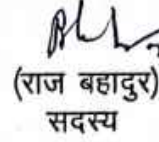 (राज बहादुर)
सदस्य